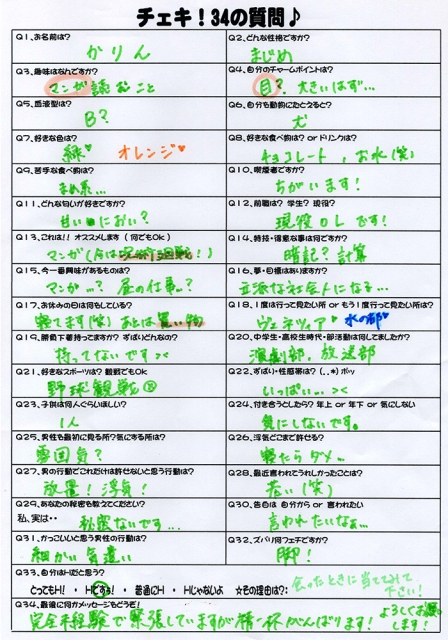 チェキ！34の質問♪
Q1.お名前は？
かりん
Q2.どんな性格ですか？
まじめ
Q3.趣味はなんですか？
マンガ読むこと
Q4.自分のチャームポイントは？
目？大きいはず…
Q5.血液型は？
B？
Q6.自分を動物にたとえると？
犬
Q7.好きな色は？
緑 オレンジ
Q8.好きな食べ物は？ or ドリンクは？
チョコレート、お水(笑)
Q9.苦手な食べ物は？
まめ系…
Q10.喫煙者ですか？
ちがいます！
Q11.どんな匂いが好きですか？
甘いにおい？
Q12.前職は？ 学生？ 現役？
現役OLです！
Q13.これは!! オススメします（何でもOk）
マンガ
Q14.特技・得意な事は何ですか？
暗記？計算
Q15.今一番興味があるものは？
マンガ…？ 昼の仕事…？
Q16.夢・目標はありますか？
立派な社会人になる…
Q17.お休みの日は何をしている？
寝てます(笑) あとは買い物
Q18.1度は行って見たい所 or もう1度行って見たい所は？
ヴェネツィア 水の都
Q19.勝負下着持ってますか？ ずばりどんなの？
持ってないです ><
Q20.中学生・高校生時代・部活動は何してましたか？
演劇部、放送部
Q21.好きなスポーツは？ 観戦でもOK
野球観戦
Q22.ずばり・性感帯は？（..*）ポッ
いっぱい… ><
Q23.子供は何人ぐらいほしい？
1人
Q24.付き合うとしたら？ 年上 or 年下 or 気にしない
気にしないです。
Q25.男性を最初に見る所？気にする所は？
雰囲気？
Q26.浮気どこまで許せる？
寝たらダメ…
Q27.男の行動でこれだけは許せないと思う行動は？
放置！浮気！
Q28.最近言われてうれしかったことは？
若い(笑)
Q29.あなたの秘密を教えてください？
私、実は・・ 秘密ないです…
Q30.告白は 自分から or 言われたい
言われたいなぁ…
Q31.かっこいいと思う男性の行動は？
細かい気遣い
Q32.ズバリ何フェチですか？
脚！
Q33.自分はHだと思う？
とってもH！ ・ Hですぅ！ ・ 普通にH ・ Hじゃないよ ☆その理由は？： 会ったときに当ててみて下さい！
Q34.最後に何かメッセージをどうぞ！
完全未経験で緊張していますが精一杯がんばります！ よろしくお願いします！